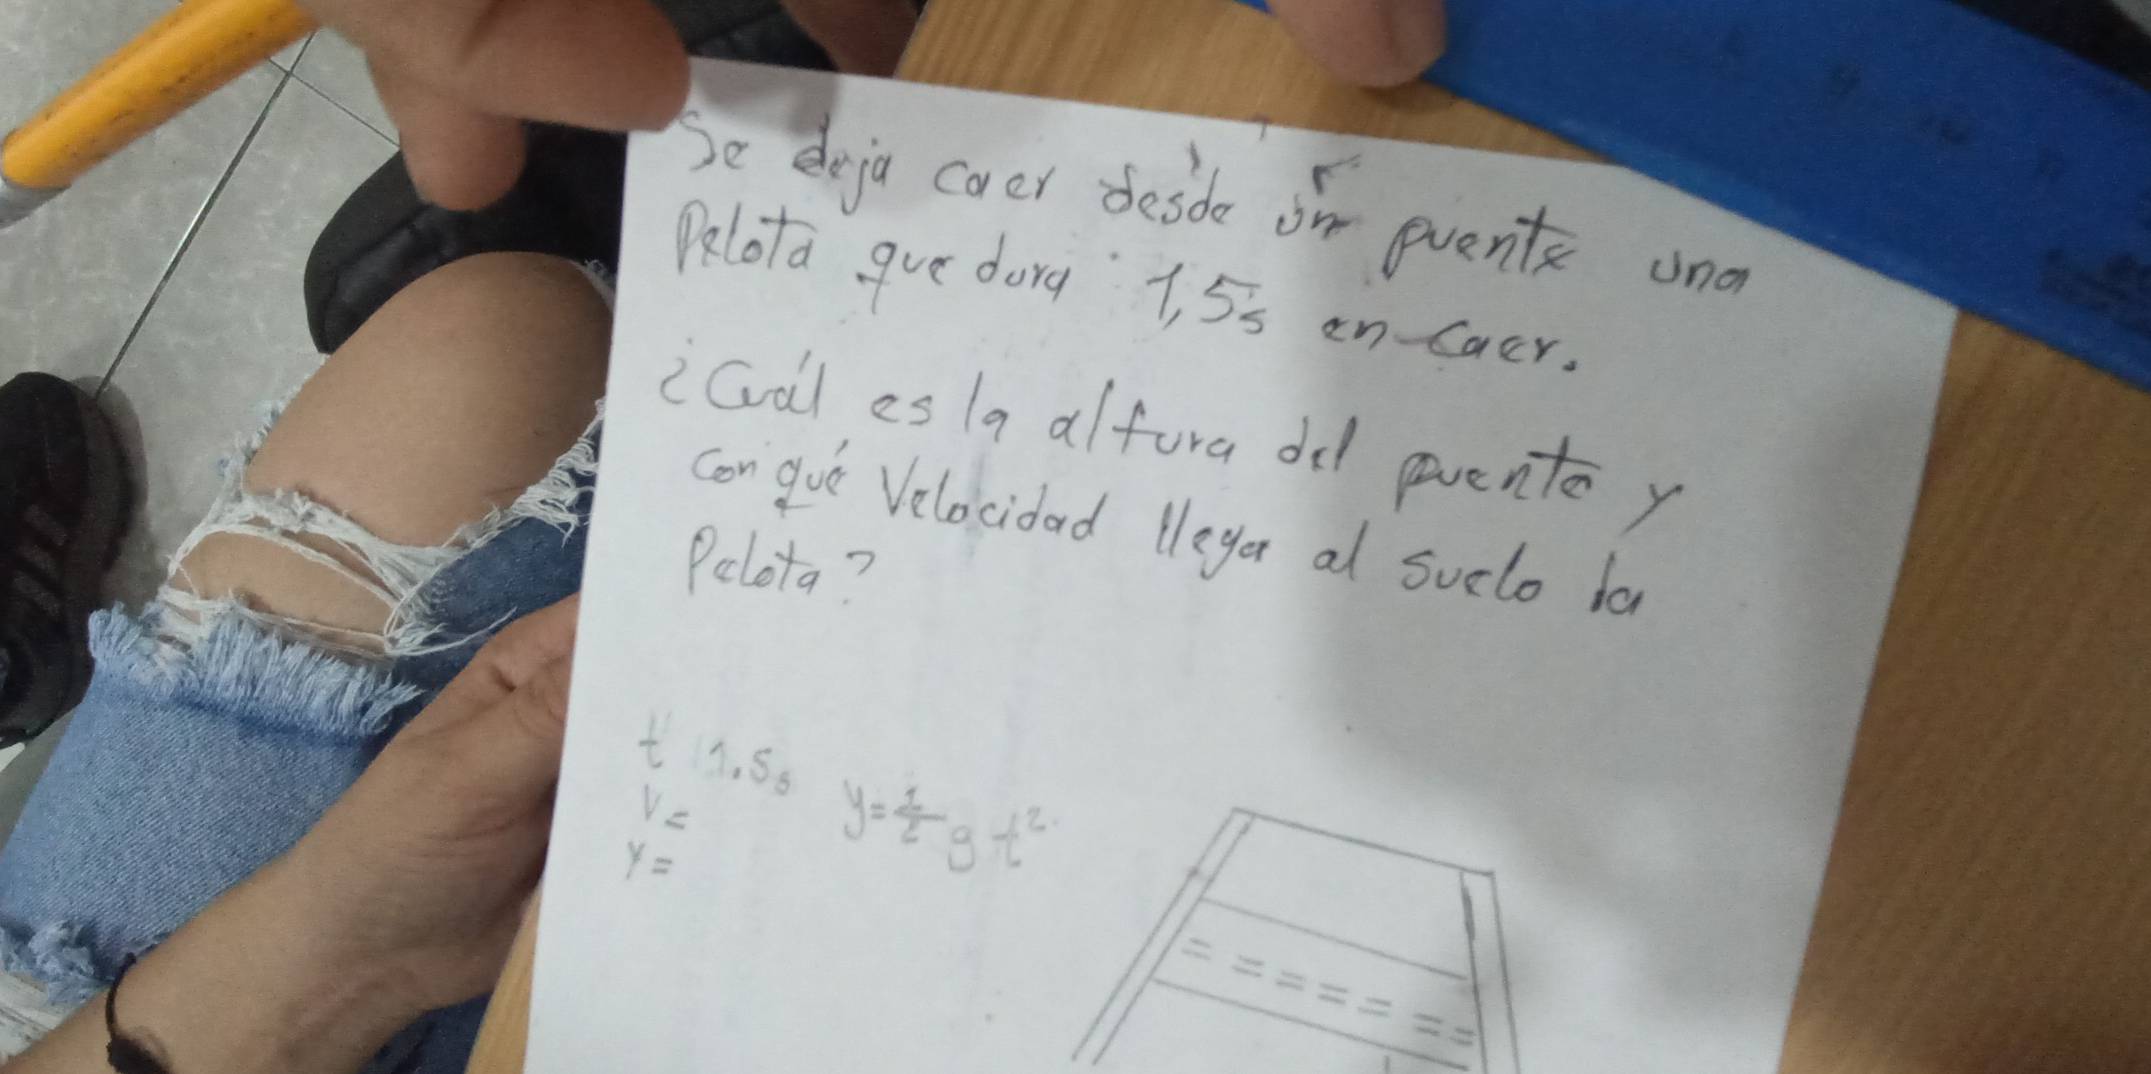 Se deja caer desde un puente una
Pelota que dura 1,5s en caer.
¿Cuál es la altura del puente y
con qué Velocidad llega al suelo la
Pelota?
t 1.5s
V=
y=
y=1/2 g t²